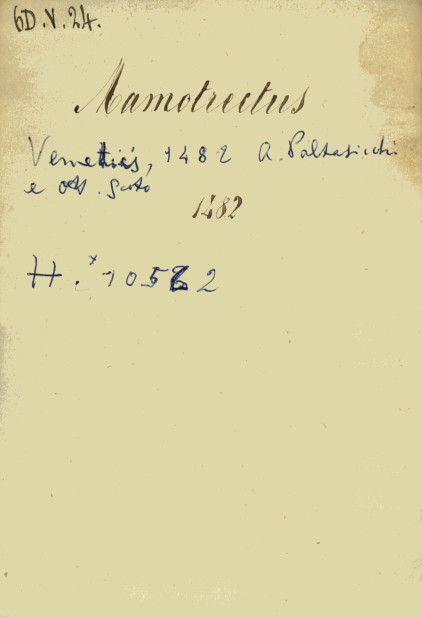 6D.V.24.
Mamotrectus
Venetiis, 1482 A. Paltasichi
e
1482
H.* 10562